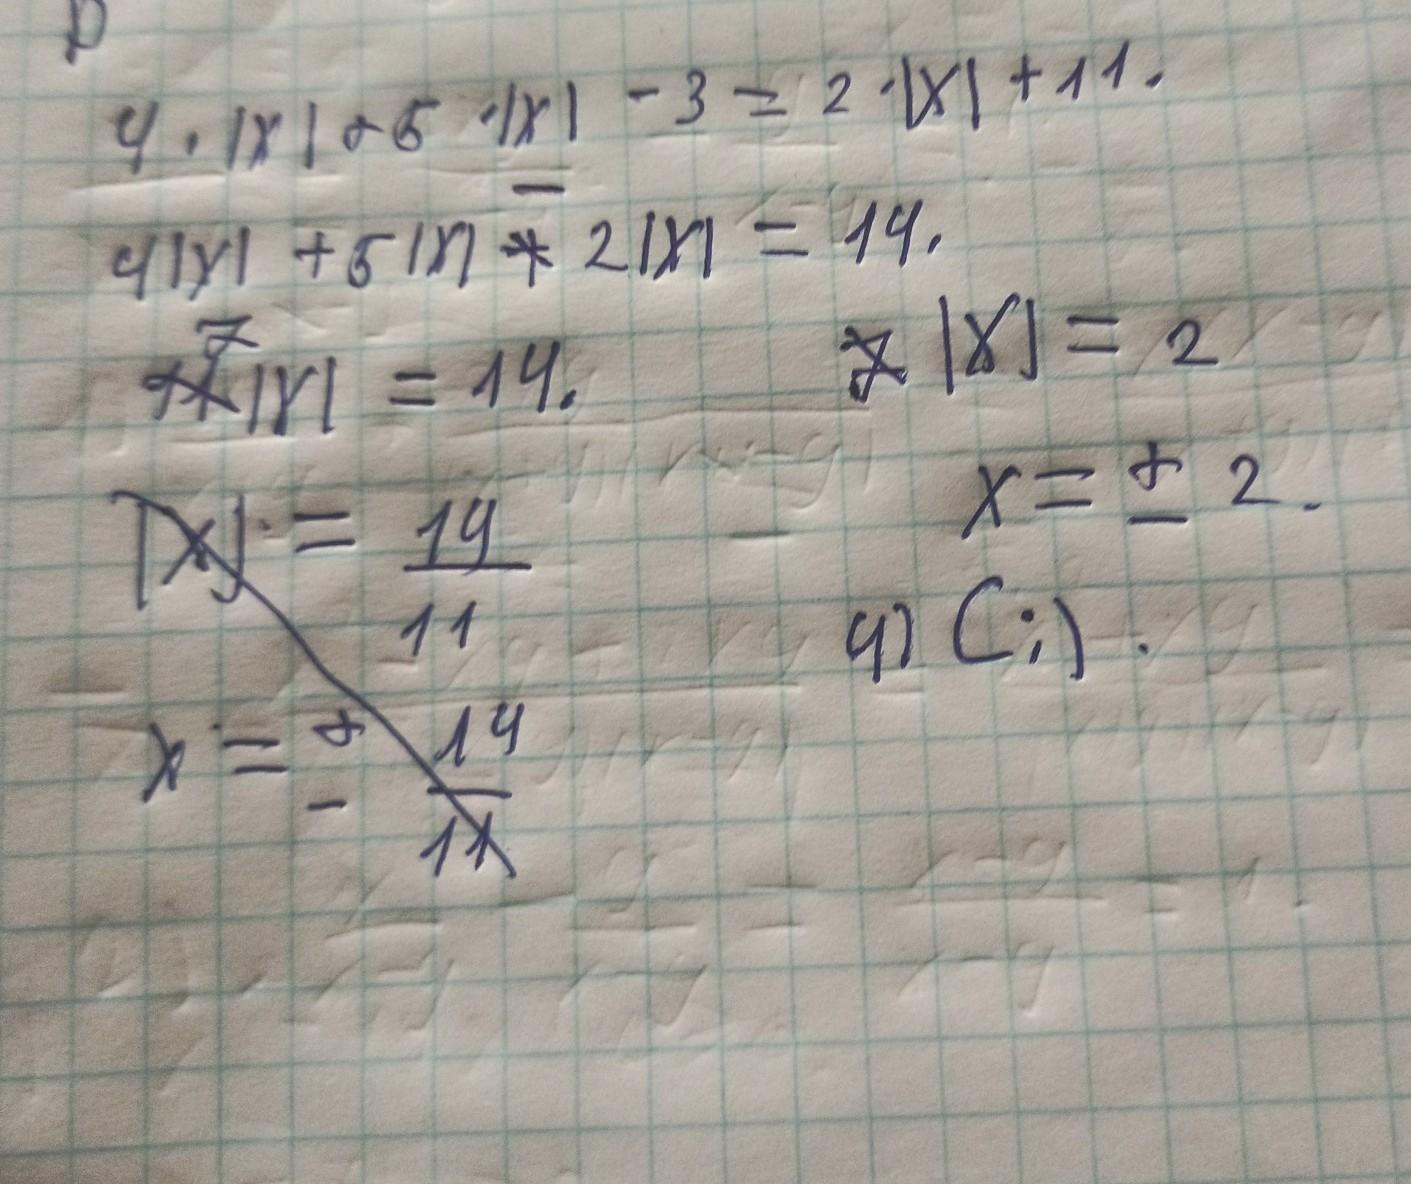 4 · |x| + 5 · |x| - 3 = 2 · |x| + 11.
4|x| + 5|x| - 2|x| = 14.
7|x| = 14.
|x| = 14/11
x = ± 14/11
|x| = 2
x = ± 2.
4) ( ; ) .